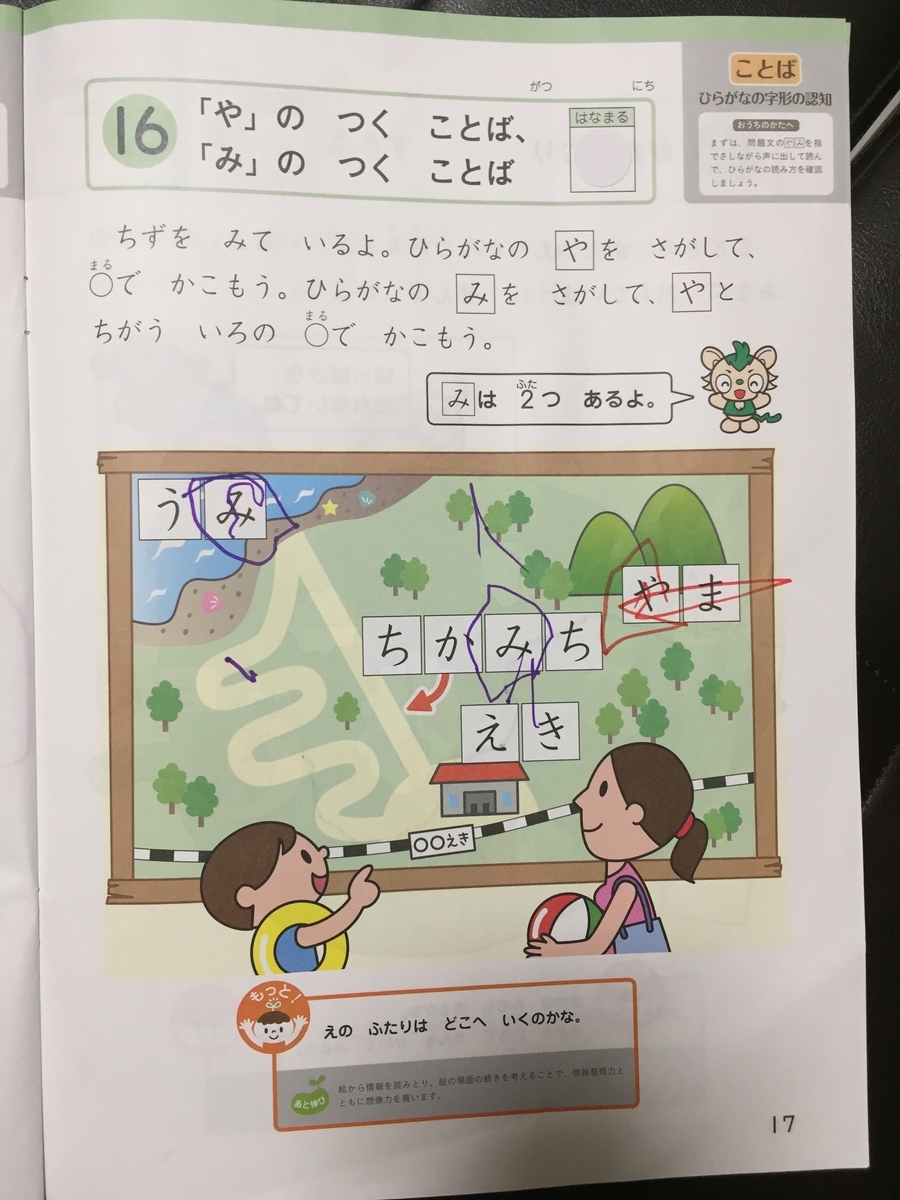 がつ にち
16
「や」の つく ことば、
「み」の つく ことば
はなまる
ことば
ひらがなの字形の認知
おうちのかたへ
まずは、問題文のやみを指
でさしながら声に出して読ん
で、ひらがなの読み方を確認
しましょう。
ちずを みて いるよ。ひらがなの やを さがして、
まる
○で かこもう。ひらがなの みを さがして、やと
まる
ちがう いろの ○で かこもう。
ふた
みは 2つ あるよ。
うみ
やま
ちかみち
えき
○○えき
もっと!
えの ふたりは どこへ いくのかな。
あと伸び
絵から情報を読みとり、絵の場面の続きを考えることで、情報整理力と
ともに想像力を養います。
17